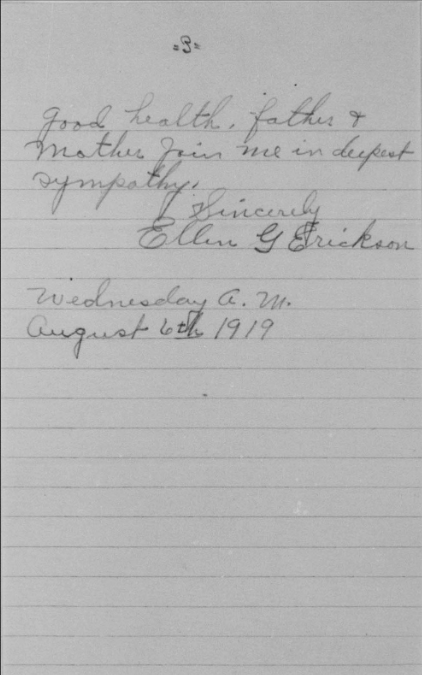 =3=
good health. father &
Mother Join me in deepest
sympathy.
Sincerely
Ellen G Erickson
Wednesday A. M.
August 6th 1919